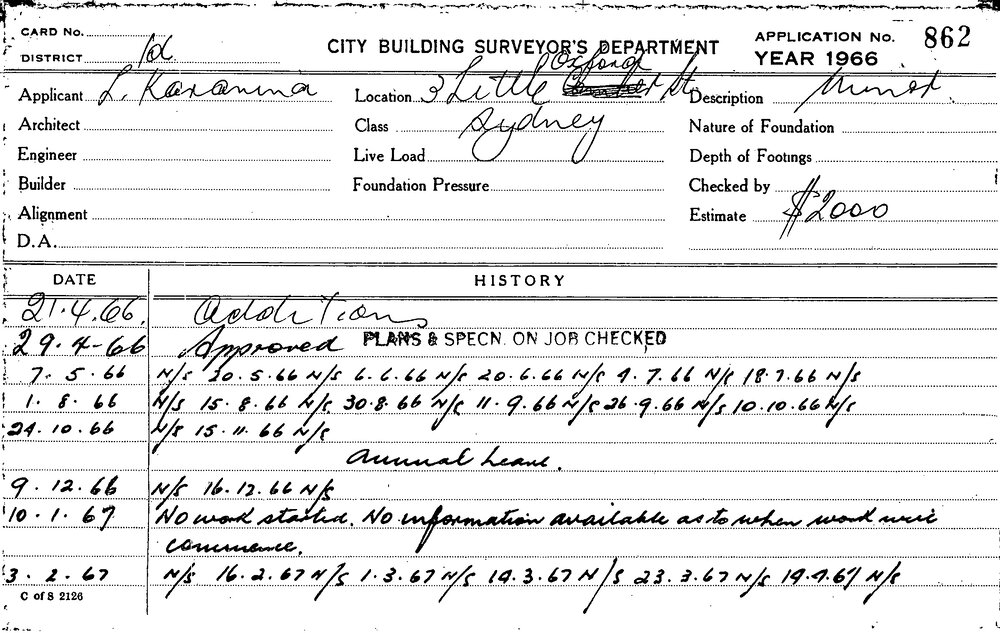 CARD No.
DISTRICT
CITY BUILDING SURVEYOR'S DEPARTMENT
APPLICATION No. 862
YEAR 1966
Applicant L. Karanina
Location 3 Little Oxford St,
Description Minor
Architect
Class Sydney
Nature of Foundation
Engineer
Live Load
Depth of Footings
Builder
Foundation Pressure
Checked by
Alignment
Estimate $2000
D.A.
DATE HISTORY
21.4.66. Additions
29.4-66 Approved PLANS & SPECN. ON JOB CHECKED
7.5.66 N/S 20.5.66 N/S 6.6.66 N/S 20.6.66 N/S 4.7.66 N/S 18.7.66 N/S
1.8.66 N/S 15.8.66 N/S 30.8.66 N/S 11.9.66 N/S 26.9.66 N/S 10.10.66 N/S
24.10.66 N/S 15.11.66 N/S
Annual Leave.
9.12.66 N/S 16.12.66 N/S
10.1.67 No work started. No information available as to when work will
commence.
3.2.67 N/S 16.2.67 N/S 1.3.67 N/S 14.3.67 N/S 23.3.67 N/S 14.4.67 N/S
C of S 2126